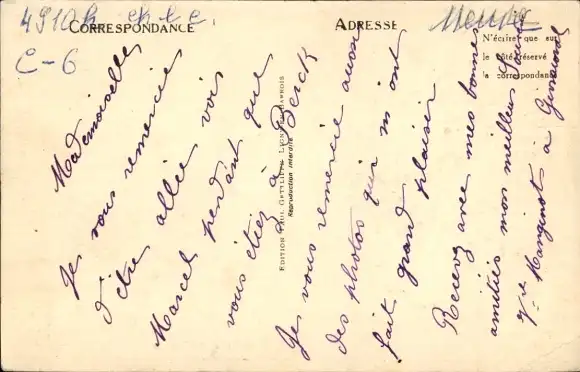 4910h
Meuse
C-6
CORRESPONDANCE
ADRESSE
N'écrire que sur
le côté réservé
la correspondance
EDITION PAUL
Reproduction interdite
Mademoiselle
Je vous remercie
d'être allée voir
Marcel pendant que
vous étiez à Berck
Je vous remercie aussi
des photos qui m'ont
fait grand plaisir
Recevez avec mes bonnes
amitiés mon meilleur
Marginot à